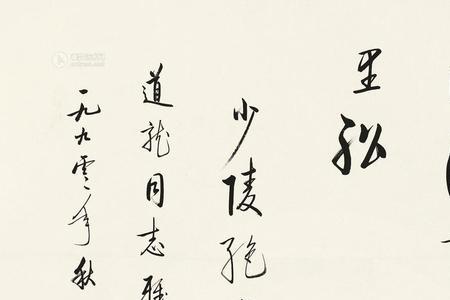 里船
少陵绝
道龍同志雅
一九九零年秋